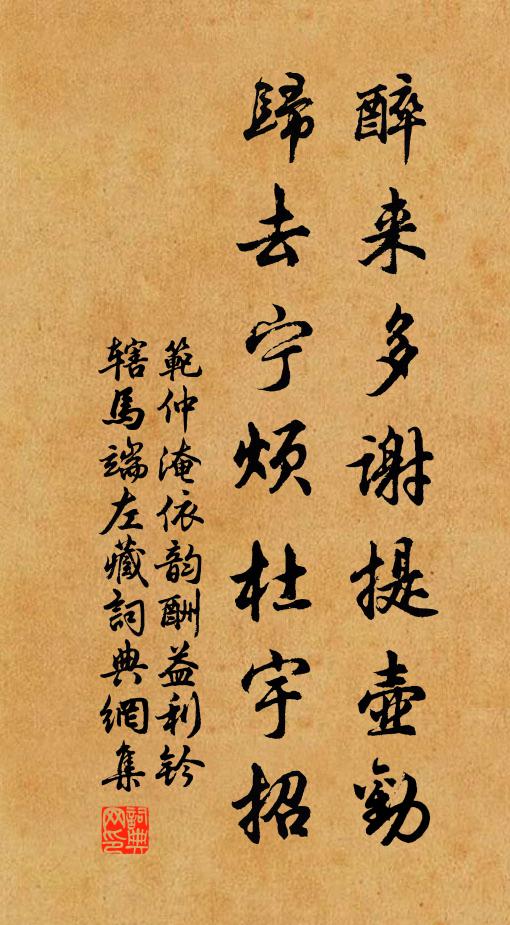 醉来多谢提壶劝
歸去宁烦杜宇招
範仲淹依韵酬益利钤
辖馬端左藏詞典網集
詞典网印